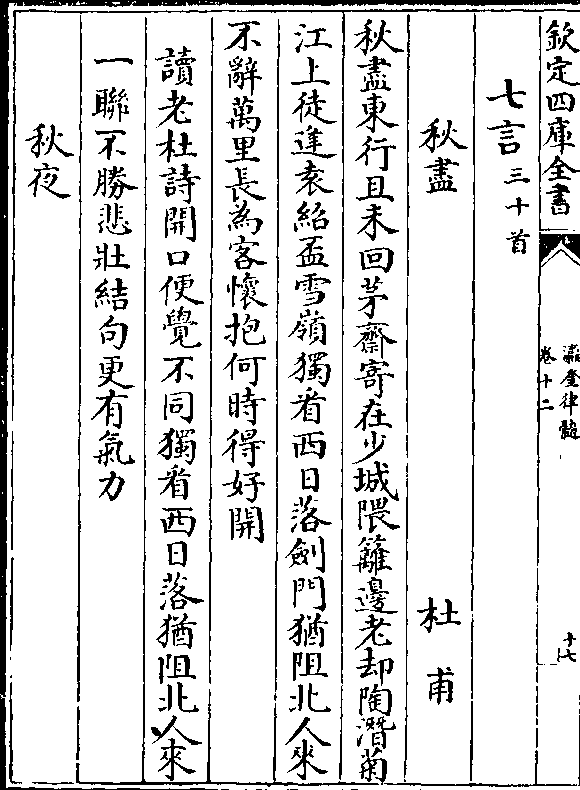 欽定四庫全書
瀛奎律髓
卷十二
十七
七言三十首
秋盡
杜甫
秋盡東行且未回茅齋寄在少城隈籬邊老却陶潛菊
江上徒逢袁紹盃雪嶺獨看西日落劍門猶阻北人來
不辭萬里長為客懷抱何時得好開
讀老杜詩開口便覺不同獨看西日落猶阻北人來
一聯不勝悲壯結句更有氣力
秋夜